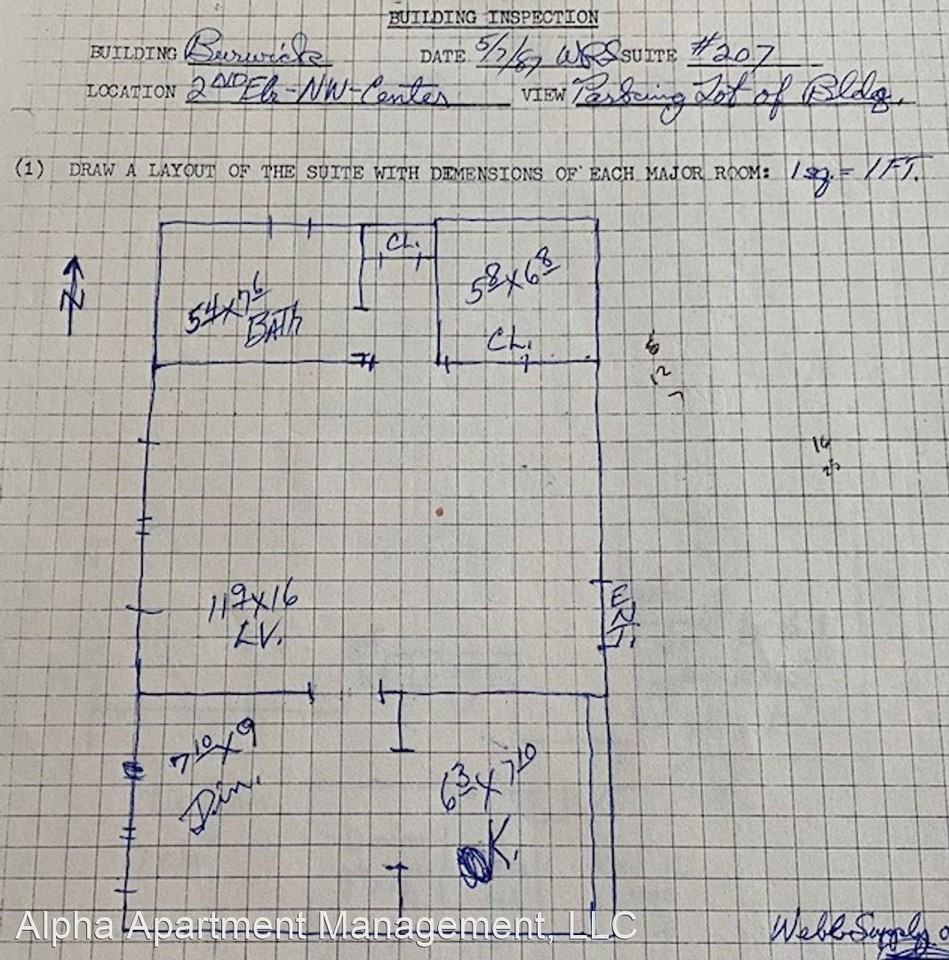 BUILDING INSPECTION
BUILDING Burwick DATE 5/7/87 WRS SUITE #207
LOCATION 2ND Flr-NW-Center VIEW Parking Lot of Bldg.
(1) DRAW A LAYOUT OF THE SUITE WITH DEMENSIONS OF EACH MAJOR ROOM: 1 sq. = 1 FT.
CL.
N
5 4 x 7 6
BATH
5 8 x 6 8
CL.
6
12
7
14
11 9 x 16
LV.
ENT.
7 10 x 9
Din.
6 3 x 7 10
K.
Alpha Apartment Management, LLC
Webb Supply